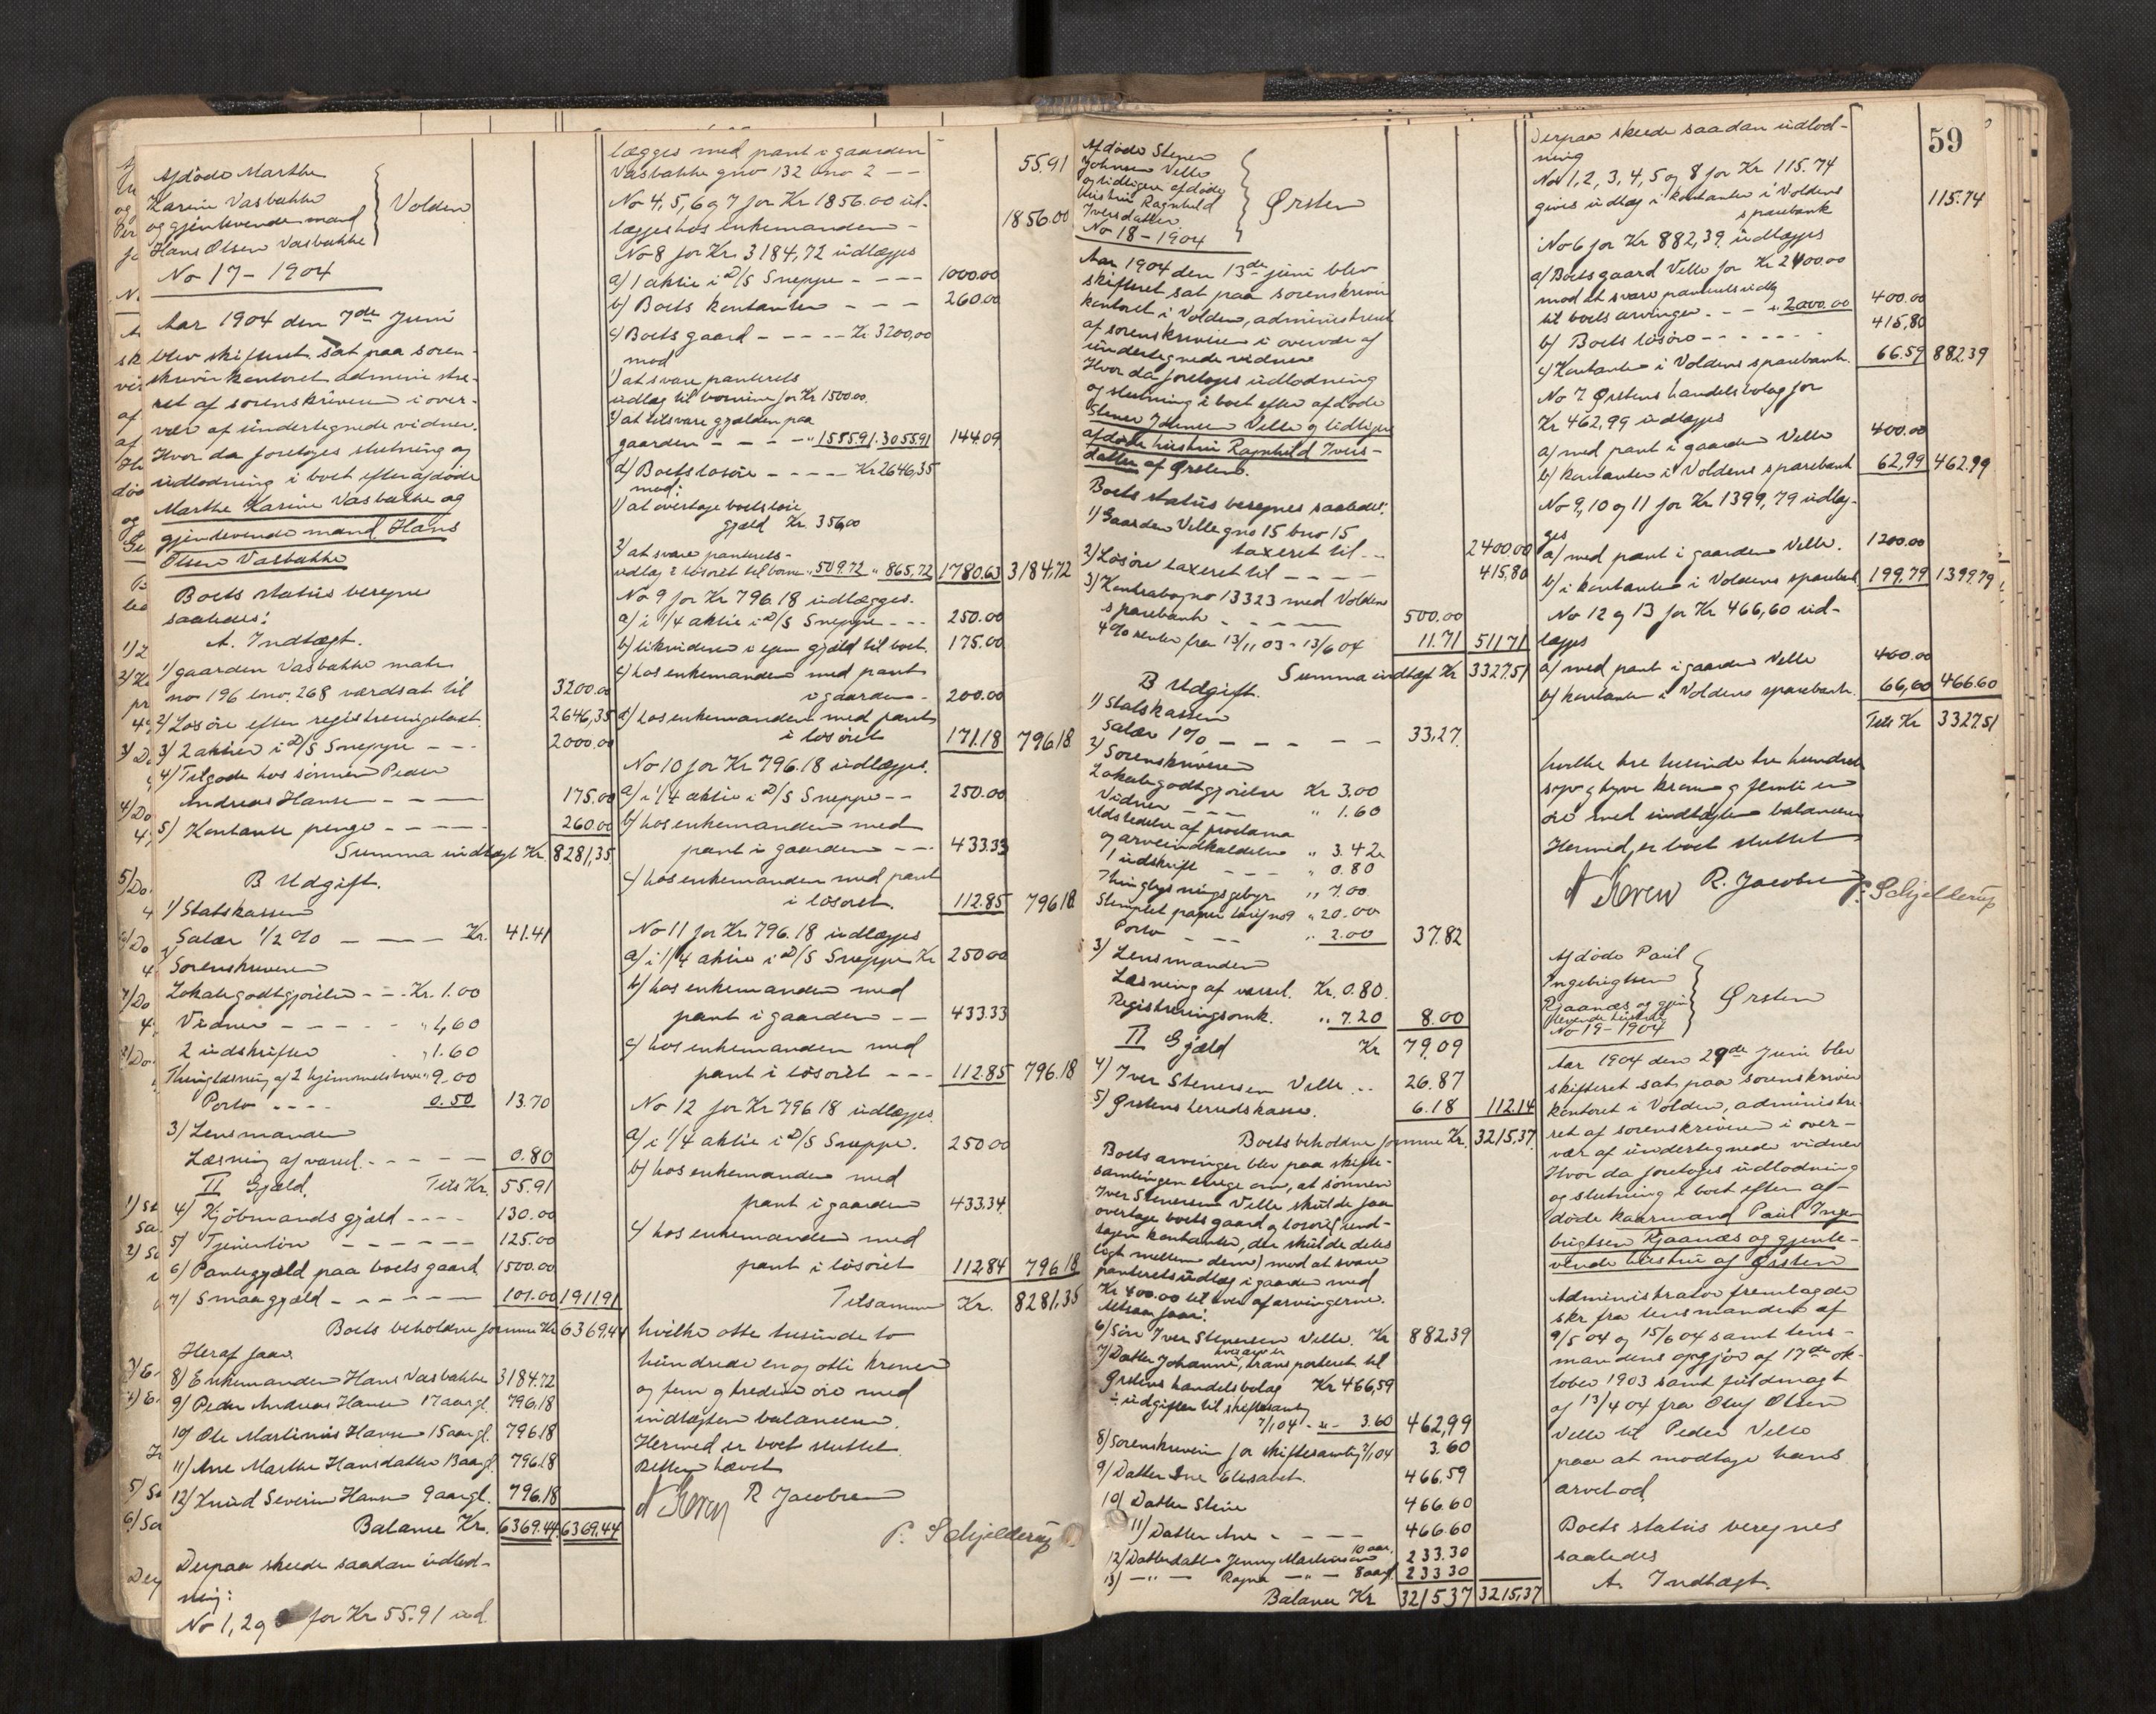 Afdøde Marthe
Karine Vasbakke
og gjenlevende mand
Hans Olsen Vasbakke
Volden
No 17 - 1904
Aar 1904 den 7de Juni
blev skifteret sat paa soren-
skriverkontoret administre-
ret af sorenskriveren i over-
vær af undertegnede vidner.
Hvor da foretoges slutning og
udlodning i boet efter afdøde
Marthe Karine Vasbakke og
gjenlevende mand Hans
Olsen Vasbakke
Boets status beregnes
saaledes:
A. Indtægt.
1) gaarden Vasbakke matr
no 196 lno. 268 værdsat til 3200.00
2) Løsøre efter registreringsfort. 2646,35
3) 2 aktier i D/S Sneppe - - - 2000.00
4) Tilgode hos sønnen Peder
Andreas Hansen - - - - 175.00
5) Kontante penge - - - - - 260.00
Summa indtægt Kr. 8281,35
B. Udgift.
1) Statskassen
Salær 1/2 % - - - Kr. 41.41
2) Sorenskriveren
Lokalegodtgjørelse - - Kr. 1.00
Vidner - - - - - " 1,60
2 udskrifter " 1.60
Thinglæsning af 2 hjemmelsbreve " 9.00
Porto - - - - 0.50 13.70
3) Lensmanden
Læsning af varsel - - - - - 0.80
II Gjæld. Tils Kr. 55.91
4) Kjøbmandsgjæld - - - - 130.00
5) Tjenerløn - - - - - - 125.00
6) Pantegjæld paa boets gaard 1500.00
7) Smaagjæld - - - - - - 101.00 1911.91
Boets beholdne formue Kr 6369.44
Heraf faar
8) Enkemanden Hans Vasbakke 3184.72
9) Peder Andreas Hansen 17 aar gl. 796.18
10) Ole Martinius Hansen 15 aar gl. 796.18
11) Ane Marthe Hansdatter 13 aar gl. 796.18
12) Knud Severin Hansen 9 aar gl. 796.18
Balance Kr. 6369.44 6369.44
Derpaa skeede saadan udlod-
ning:
No 1, 2 og 3 for Kr 55.91 ud
lægges med pant i gaarden
Vasbakke gno 132 bno 2 - - 55.91
No 4, 5, 6 og 7 for Kr 1856.00 ud-
lægges hos enkemanden - 1856.00
No 8 for Kr. 3184,72 udlægges
a) 1 aktie i D/S Sneppe - - - - 1000.00
b) Boets kontanter - - - 260.00
c) Boets gaard - - - - - Kr 3200,00
mod
1) at svare panterets
udlæg til børnene for Kr 1500.00
2) at tilsvare gjælden paa
gaarden - - - - " 1555.91 . 3055.91 144.09
d) Boets løsøre - - - - - Kr 2646,35
mod:
1) at overtage boets løse
gjæld Kr. 356.00
2) at svare panterets-
udlæg i løsøret til børne " 509.72 " 865,72 1780.63 3184,72
No 9 for Kr 796.18 udlægges.
a) i 1/4 aktie i D/S Sneppe - - - 250.00
b) likvideres i egen gjæld til boet. 175.00
c) hos enkemanden med pant
i gaarden - 200.00
d) hos enkemanden med pant
i løsøret 171.18 796.18
No 10 for Kr 796.18 udlægges.
a) i 1/4 aktie i D/S Sneppe - - 250.00
b) hos enkemanden med
pant i gaarden - - - 433.33
c) hos enkemanden med pant
i løsøret. 112.85 796.18
No 11 for Kr. 796.18 udlægges
a) i 1/4 aktie i D/S Sneppe Kr 250.00
b) hos enkemanden med
pant i gaarden - - 433.33
c) hos enkemanden med
pant i løsøret - - - 112.85 796.18
No 12 for Kr 796 18 udlægges.
a) i 1/4 aktie i D/S Sneppe. 250.00
b) hos enkemanden med
pant i gaarden 433.34
c) hos enkemanden med
pant i løsøret 112.84 796.18
Tilsammen Kr. 8281,35
hvilke otte tusinde to
hundrede en og otti kroner
og fem og tredive øre med
indtægten balancerer.
Hermed er boet sluttet
Retten hævet
R Jacobsen
P. Schjelderup
59
Afdøde Stener
Johnsen Velle
og tidligere afdøde
hustru Ragnhild
Iversdatter
Ørsten
No 18 - 1904
Aar 1904 den 13de juni blev
skifteret sat paa sorenskriver
kontoret i Volden, administreret
af sorenskriveren i overvær af
undertegnede vidner
Hvor da foretoges udlodning
og slutning i boet efter afdøde
Stener Johnsen Velle og tidligere
afdøde hustru Ragnhild Ivers-
datter af Ørsten.
Boets status beregnes saaledes:
1) Gaarden Velle gno 15 bno 15
taxeret til - - 2400.00
2) Løsøre taxeret til - - - - 415,80
3) Kontrabog no 13323 med Voldens
sparebank - - - - - 500.00
4 % renter fra 13/11 03 - 13/6 04 11.71 511 71
Summa indtægt Kr 3327.51
B Udgift.
1) Statskassen
Salær 1 % - - - - - 33,27.
2) Sorenskriveren
Lokalegodtgjørelse Kr 3,00
Vidner - - - " 1.60
Udstedelse af proclama
og arveindkaldelse " 3.42
1 udskrift - - - " 0.80
Thinglysningsgebyr " 7.00
Stemplet papir tarif no 9 " 20.00
Porto - - " 2.00 37.82
3) Lensmanden
Læsning af varsel. Kr. 0.80
Registreringsomk. " 7.20 8.00
II Gjæld Kr 79,09
4) Iver Stenersen Velle .. 26.87
5) Ørstens herredskasse. 6.18 112.14
Boets beholdne formue Kr. 3215,37
Boets arvinger blev paa skifte-
samlingen enige om, at sønnen
Iver Stenersen Velle skulde faa
overtage boets gaard og løsøre (und-
tagen kontanter, der skulde deles
ligt mellem dem) mod at svare
panteretsudlæg i gaarden med
Kr 400.00 til hver af arvingerne.
Altsaa faar:
6) Søn Iver Stenersen Velle. Kr 882,39
7) Datter Johanne, hvis arv er transporteret til
Ørstens handelsbolag Kr 466,59
÷ udgifter til skiftesamling
7/1 04 - " - 3.60 462,99
8) Sorenskriveren for skiftesamling 7/1 04 3.60
9) Datter Ane Elisabet. 466.59
10) Datter Stine 466.60
11) Datter Ane - - - - 466.60
12) Datterdatter Jenny Martinsen 10 aar. 233.30
13) - " - Ragna - " - 8 aar gl. 233 30
Balance Kr 3215 37 3215,37
Derpaa skeede saadan udlod-
ning
No 1, 2, 3, 4, 5 og 8 for Kr 115.74
gives udlæg i kontanter i Voldens
sparebank 115.74
No 6 for Kr 882,39 udlægges
a) Boets gaard Velle for Kr 2400.00
mod at svare panteretsudlæg
til boets arvinger - - - " 2000.00 400.00
b) Boets løsøre - - - - - - 415,80
c) Kontanter i Voldens sparebank. 66.59 882.39
No 7 Ørstens handelsbolag for
Kr 462,99 udlægges
a) med pant i gaarden Velle 400.00
b) kontanter i Voldens sparebank 62,99 462.99
No 9, 10 og 11 for Kr 1399,79 udlæg-
ges
a) med pant i gaarden Velle. 1200.00
b) i kontanter i Voldens sparebank 199.79 1399.79
No 12 og 13 for Kr 466,60 ud-
lægges
a) med pant i gaarden Velle 400.00
b) kontanter i Voldens sparebank. 66,60 466.60
Tils Kr 3327.51
hvilke tre tusinde tre hundrede
syv og tyve kroner og femti en
øre med indtægten balancerer
Hermed er boet sluttet
R. Jacobsen
P. Schjelderup
Afdøde Paul
Ingebrigtsen
Rjaanæs og gjen
levende hustru
Ørsten
No 19 - 1904
Aar 1904 den 29de Juni blev
skifteret sat paa sorenskriver
kontoret i Volden, administre-
ret af sorenskriveren i over-
vær af undertegnede vidner
Hvor da foretoges udlodning
og slutning i boet efter af-
døde kaarmand Paul Inge-
brigtsen Rjaanæs og gjenle-
vende hustru af Ørsten
Administrator fremlagde
skr fra lensmanden af
9/5 04 og 15/6 04 samt lens-
mandens opgjør af 17de ok-
tober 1903 samt fuldmagt
af 13/4 04 fra Oluf Olsen
Velle til Peder Velle
paa at modtage hans
arvelod.
Boets status beregnes
saaledes
A. Indtægt.